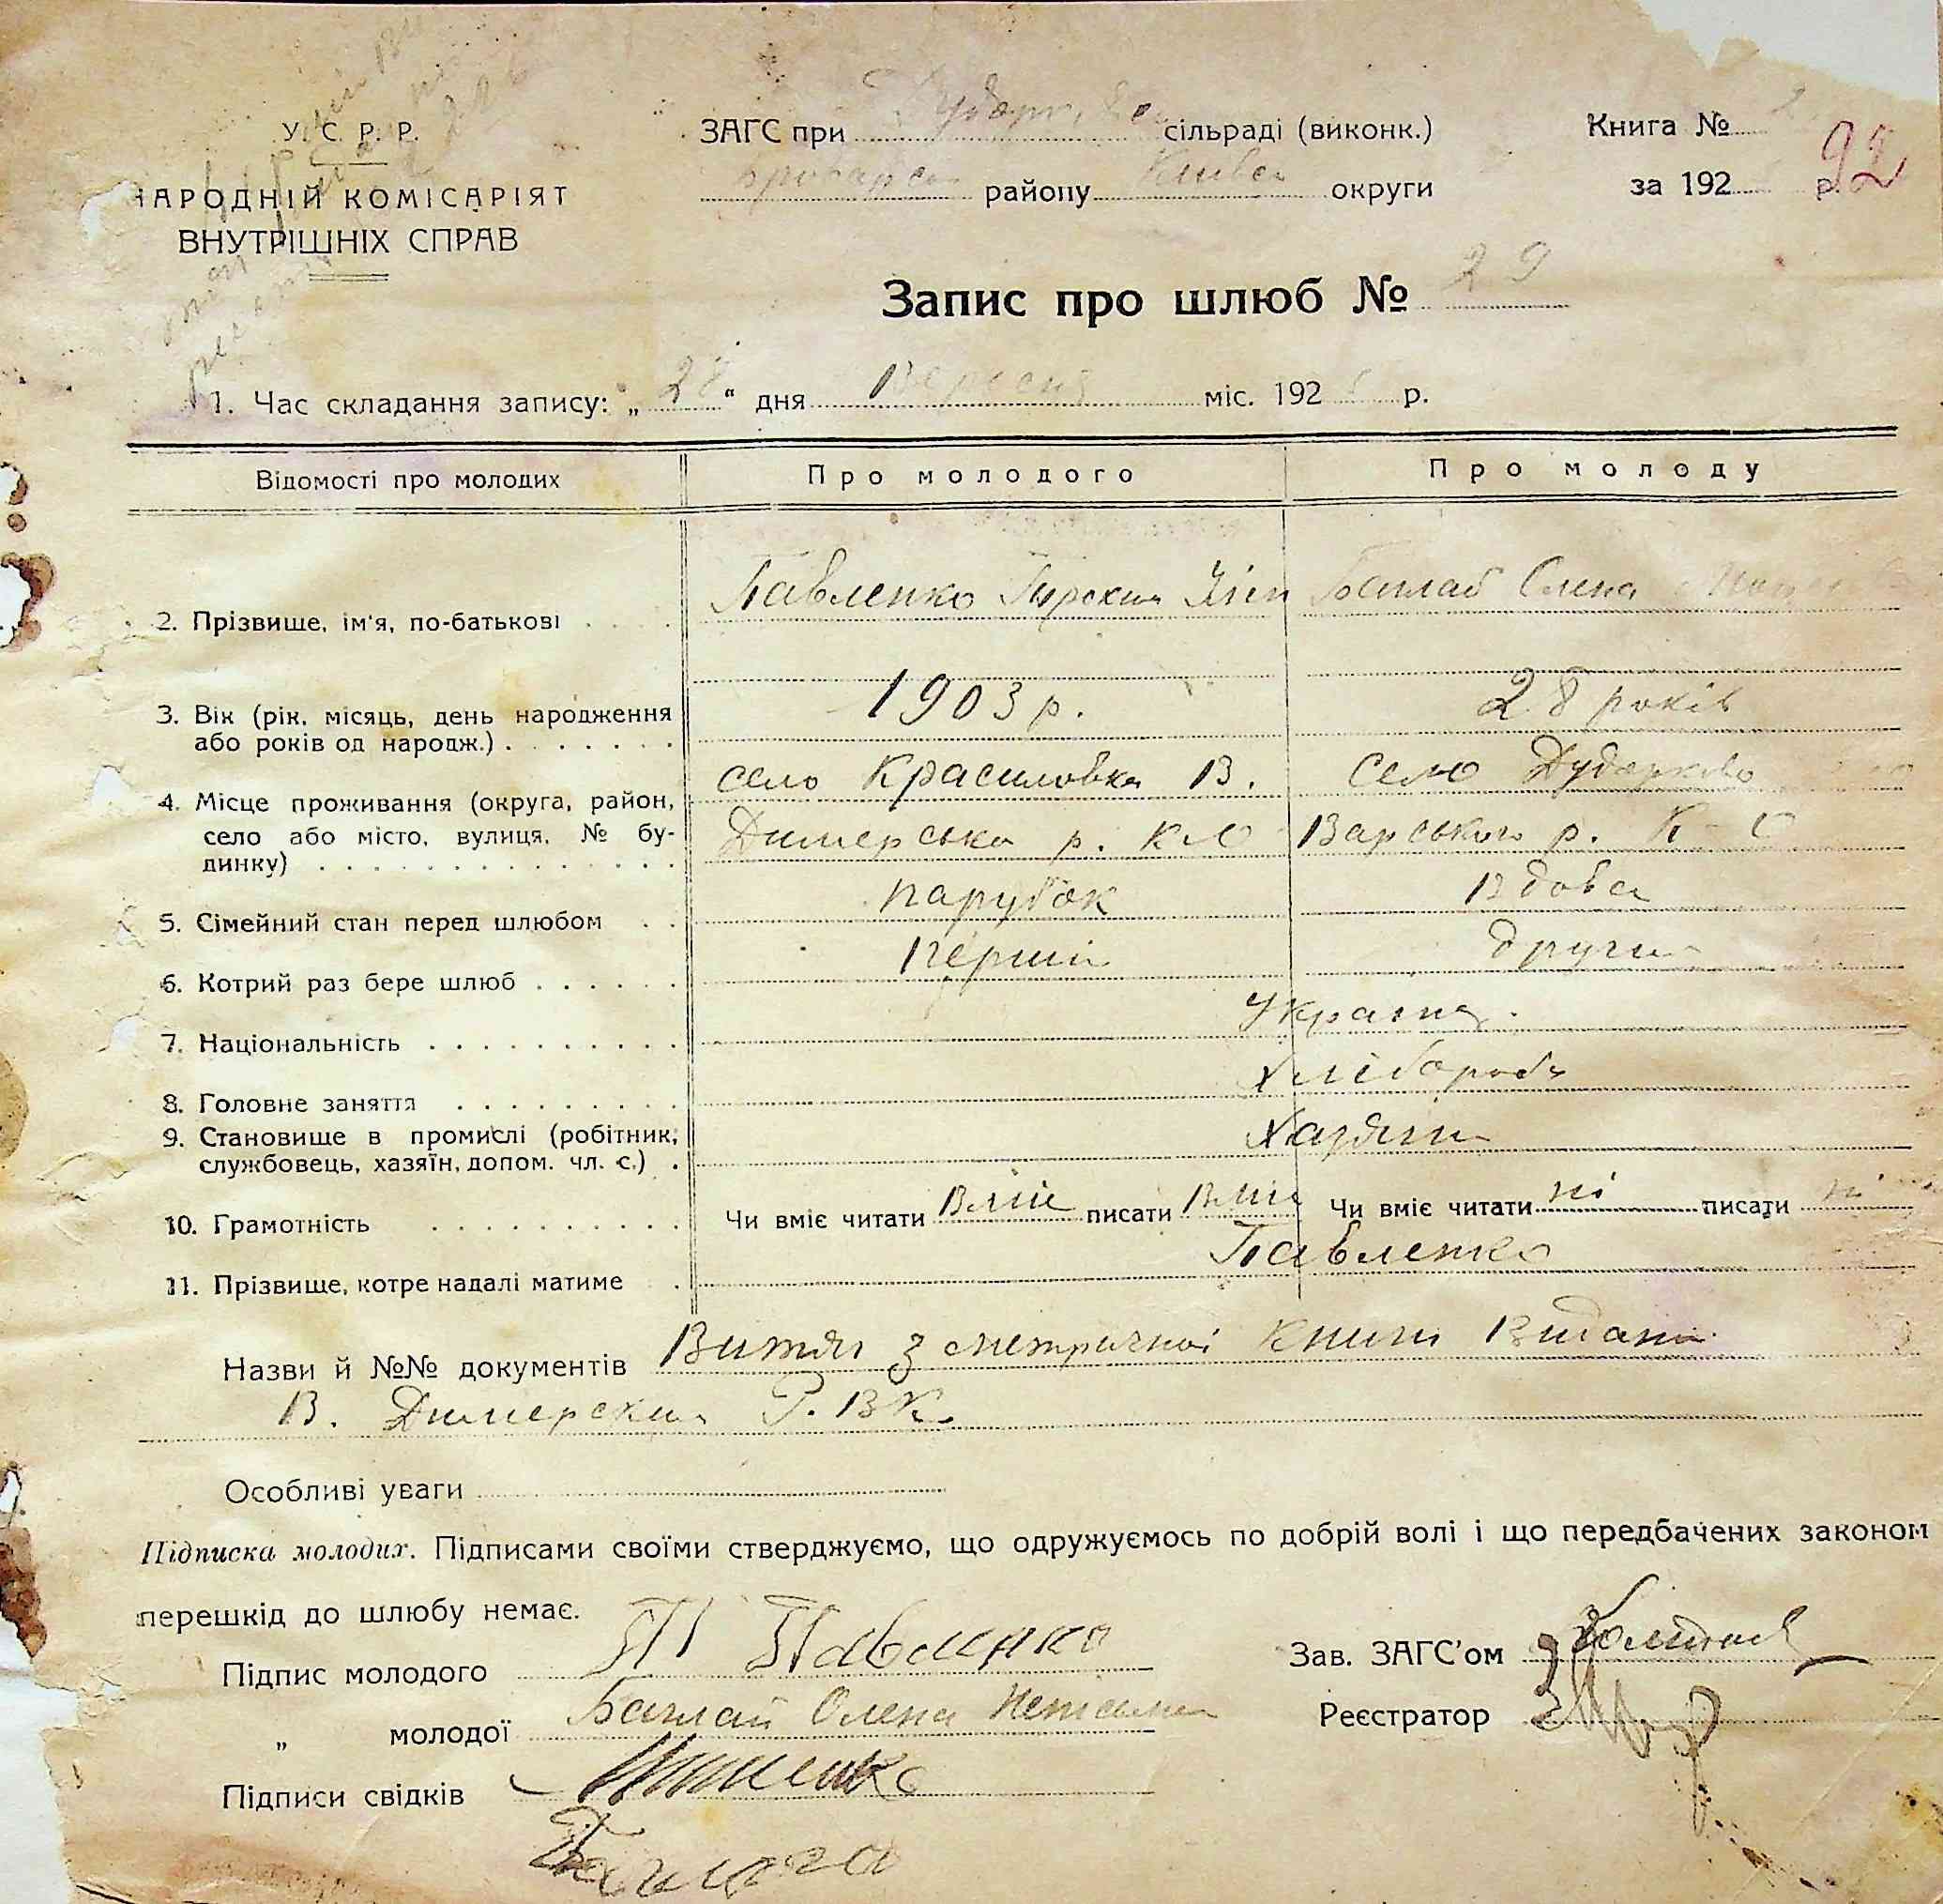 У. С. Р. Р.
НАРОДНІЙ КОМІСАРІЯТ
ВНУТРІШНІХ СПРАВ
ЗАГС при сільраді (виконк.)
району округи
Книга №
за 192 р. 92
Запис про шлюб № 29
1. Час складання запису: „28“ дня Вересня міс. 192 р.
Відомості про молодих Про молодого Про молоду
2. Прізвище, ім'я, по-батькові Павленко Олена
3. Вік (рік, місяць, день народження або років од народж.) 1903 р. 28 років
4. Місце проживання (округа, район, село або місто, вулиця, № будинку) село Красиловка В. Димерська р. К О село Дударково Варського р. К - О
5. Сімейний стан перед шлюбом парубок Вдова
6. Котрий раз бере шлюб перший другий
7. Національність Україн.
8. Головне заняття Хлібороб
9. Становище в промислі (робітник, службовець, хазяїн, допом. чл. с.) Хазяїн
10. Грамотність Чи вміє читати Вміє писати Вміє Чи вміє читати ні писати ні
11. Прізвище, котре надалі матиме Павленко
Назви й №№ документів Витяг з метричної книги Видані
В. Димерським Р. В К.
Особливі уваги
Підписка молодих. Підписами своїми стверджуємо, що одружуємось по добрій волі і що передбачених законом
перешкід до шлюбу немає.
Підпис молодого П Павленко
„ молодої Олена
Підписи свідків
Зав. ЗАГС'ом
Реєстратор